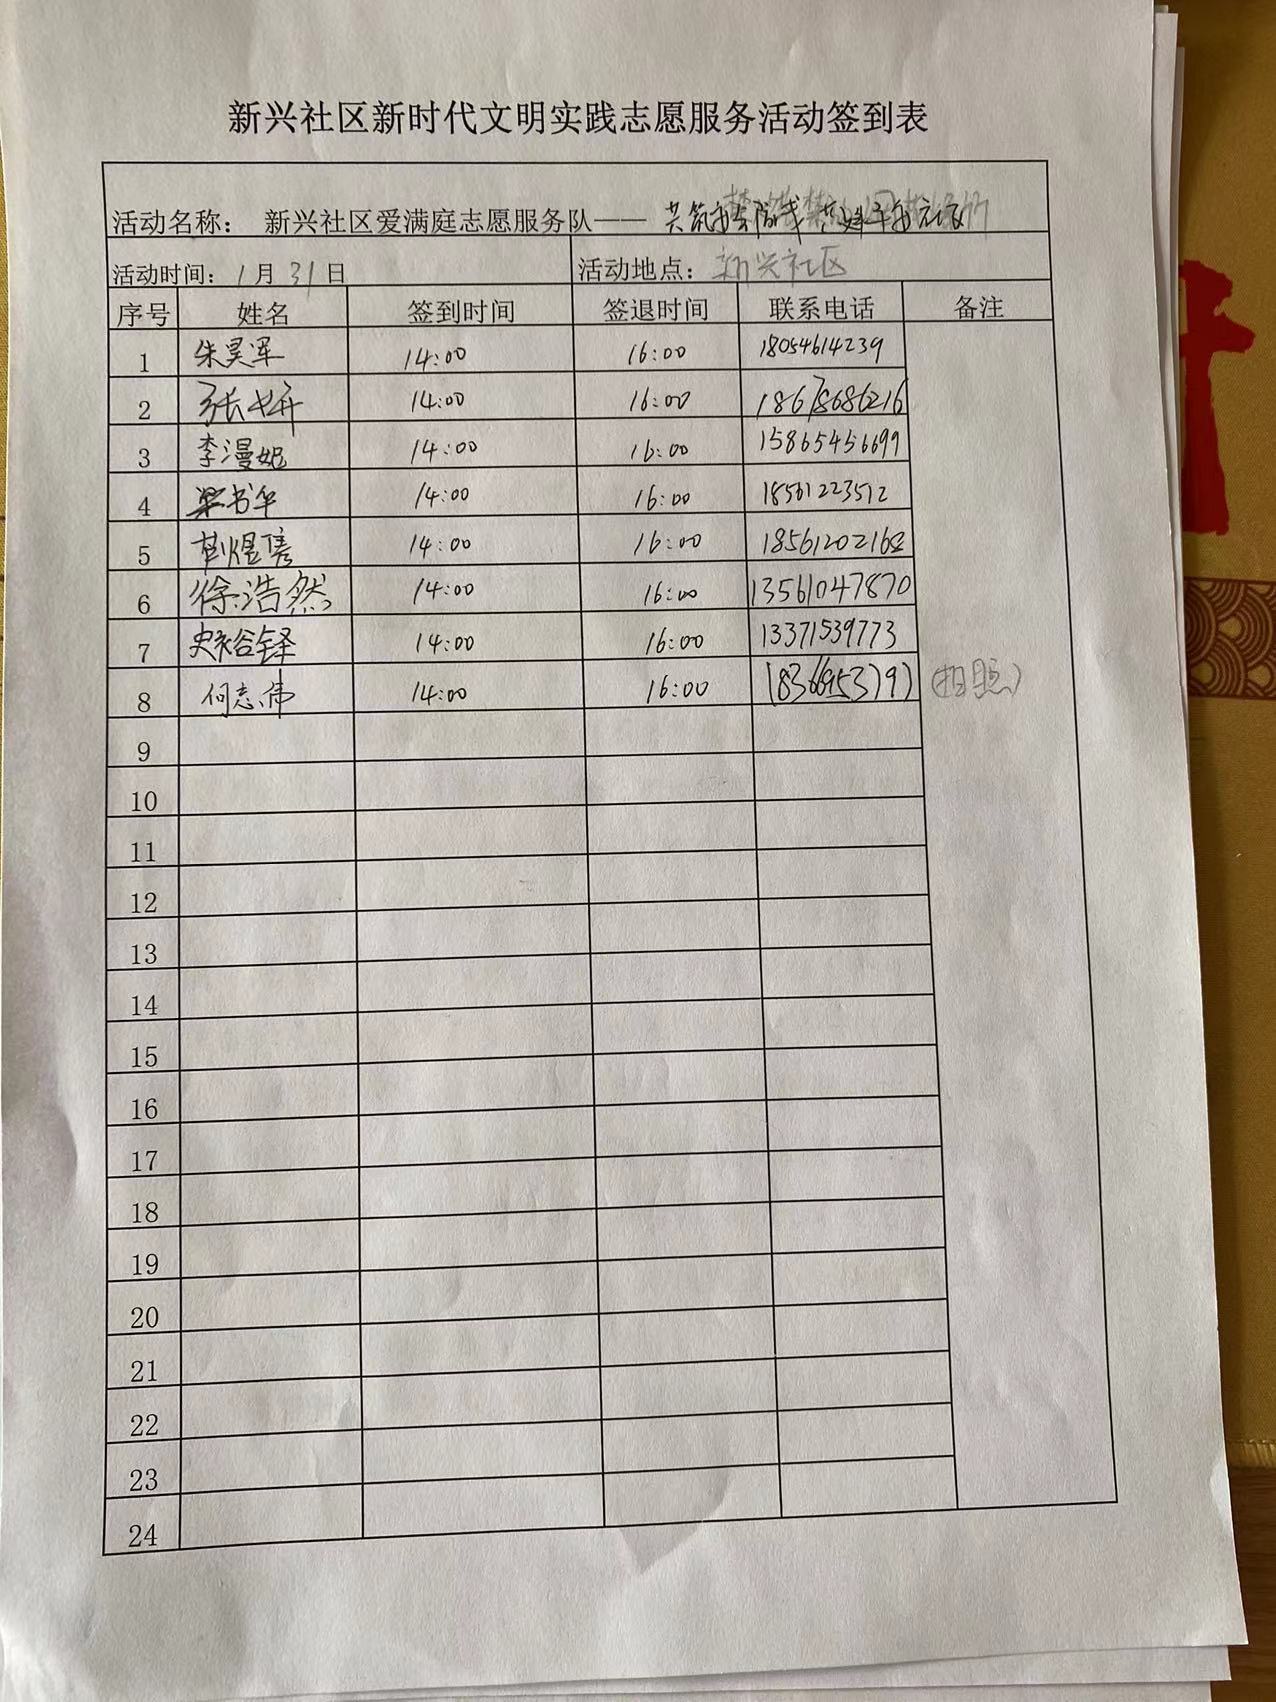 新兴社区新时代文明实践志愿服务活动签到表
活动名称： 新兴社区爱满庭志愿服务队—— 共筑 防线 共建平安社区
活动时间：1月31日 活动地点：新兴社区
序号 姓名 签到时间 签退时间 联系电话 备注
1 朱昊军 14:00 16:00 18054614239
2 张 14:00 16:00
3 李漫妮 14:00 16:00 15865456699
4 梁书华 14:00 16:00 18561223512
5 煜隽 14:00 16:00
6 徐浩然 14:00 16:00 13561047870
7 史裕铎 14:00 16:00 13371539773
8 何志伟 14:00 16:00 (拍照)
9
10
11
12
13
14
15
16
17
18
19
20
21
22
23
24